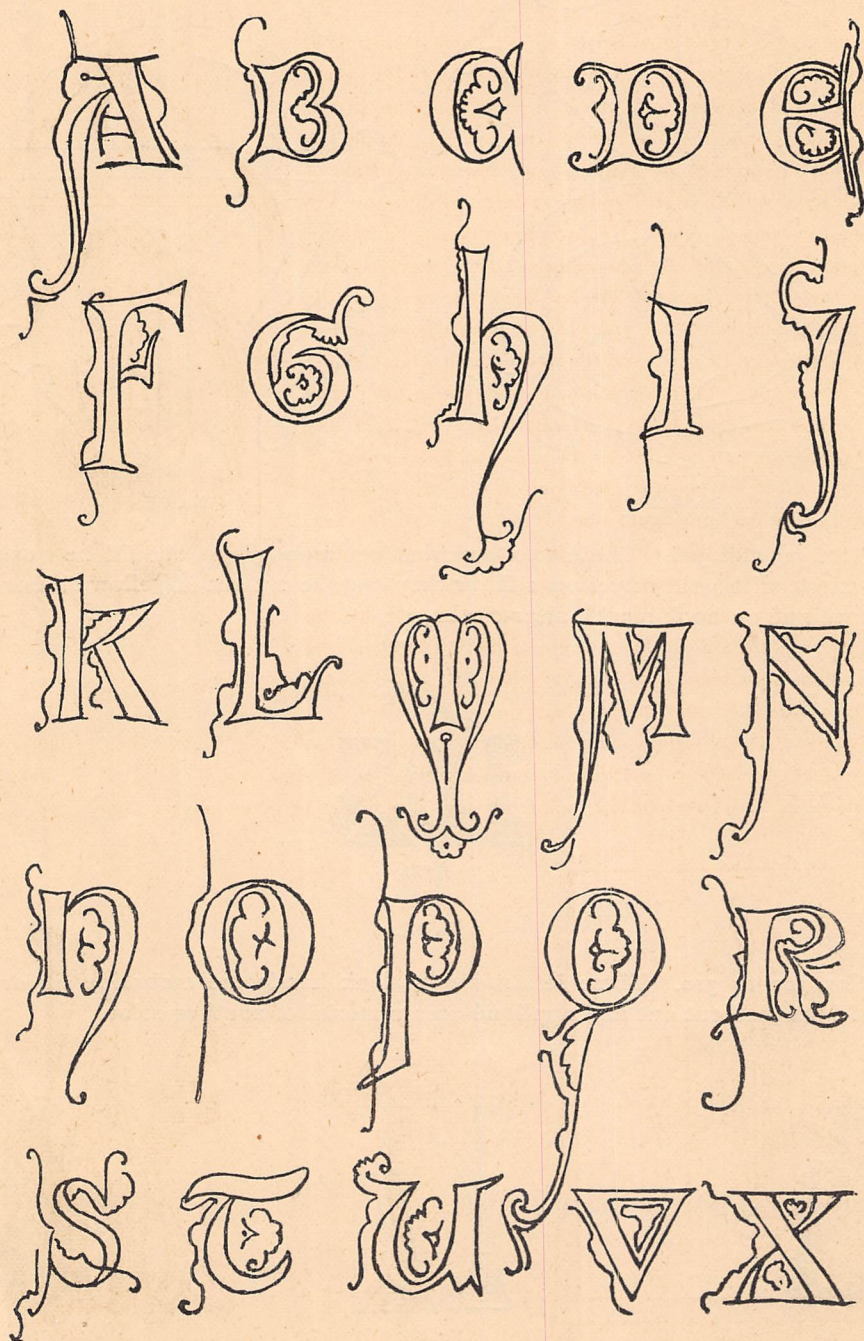 A B C D E
F G h I J
K L M M N
n O P Q R
S T U V X